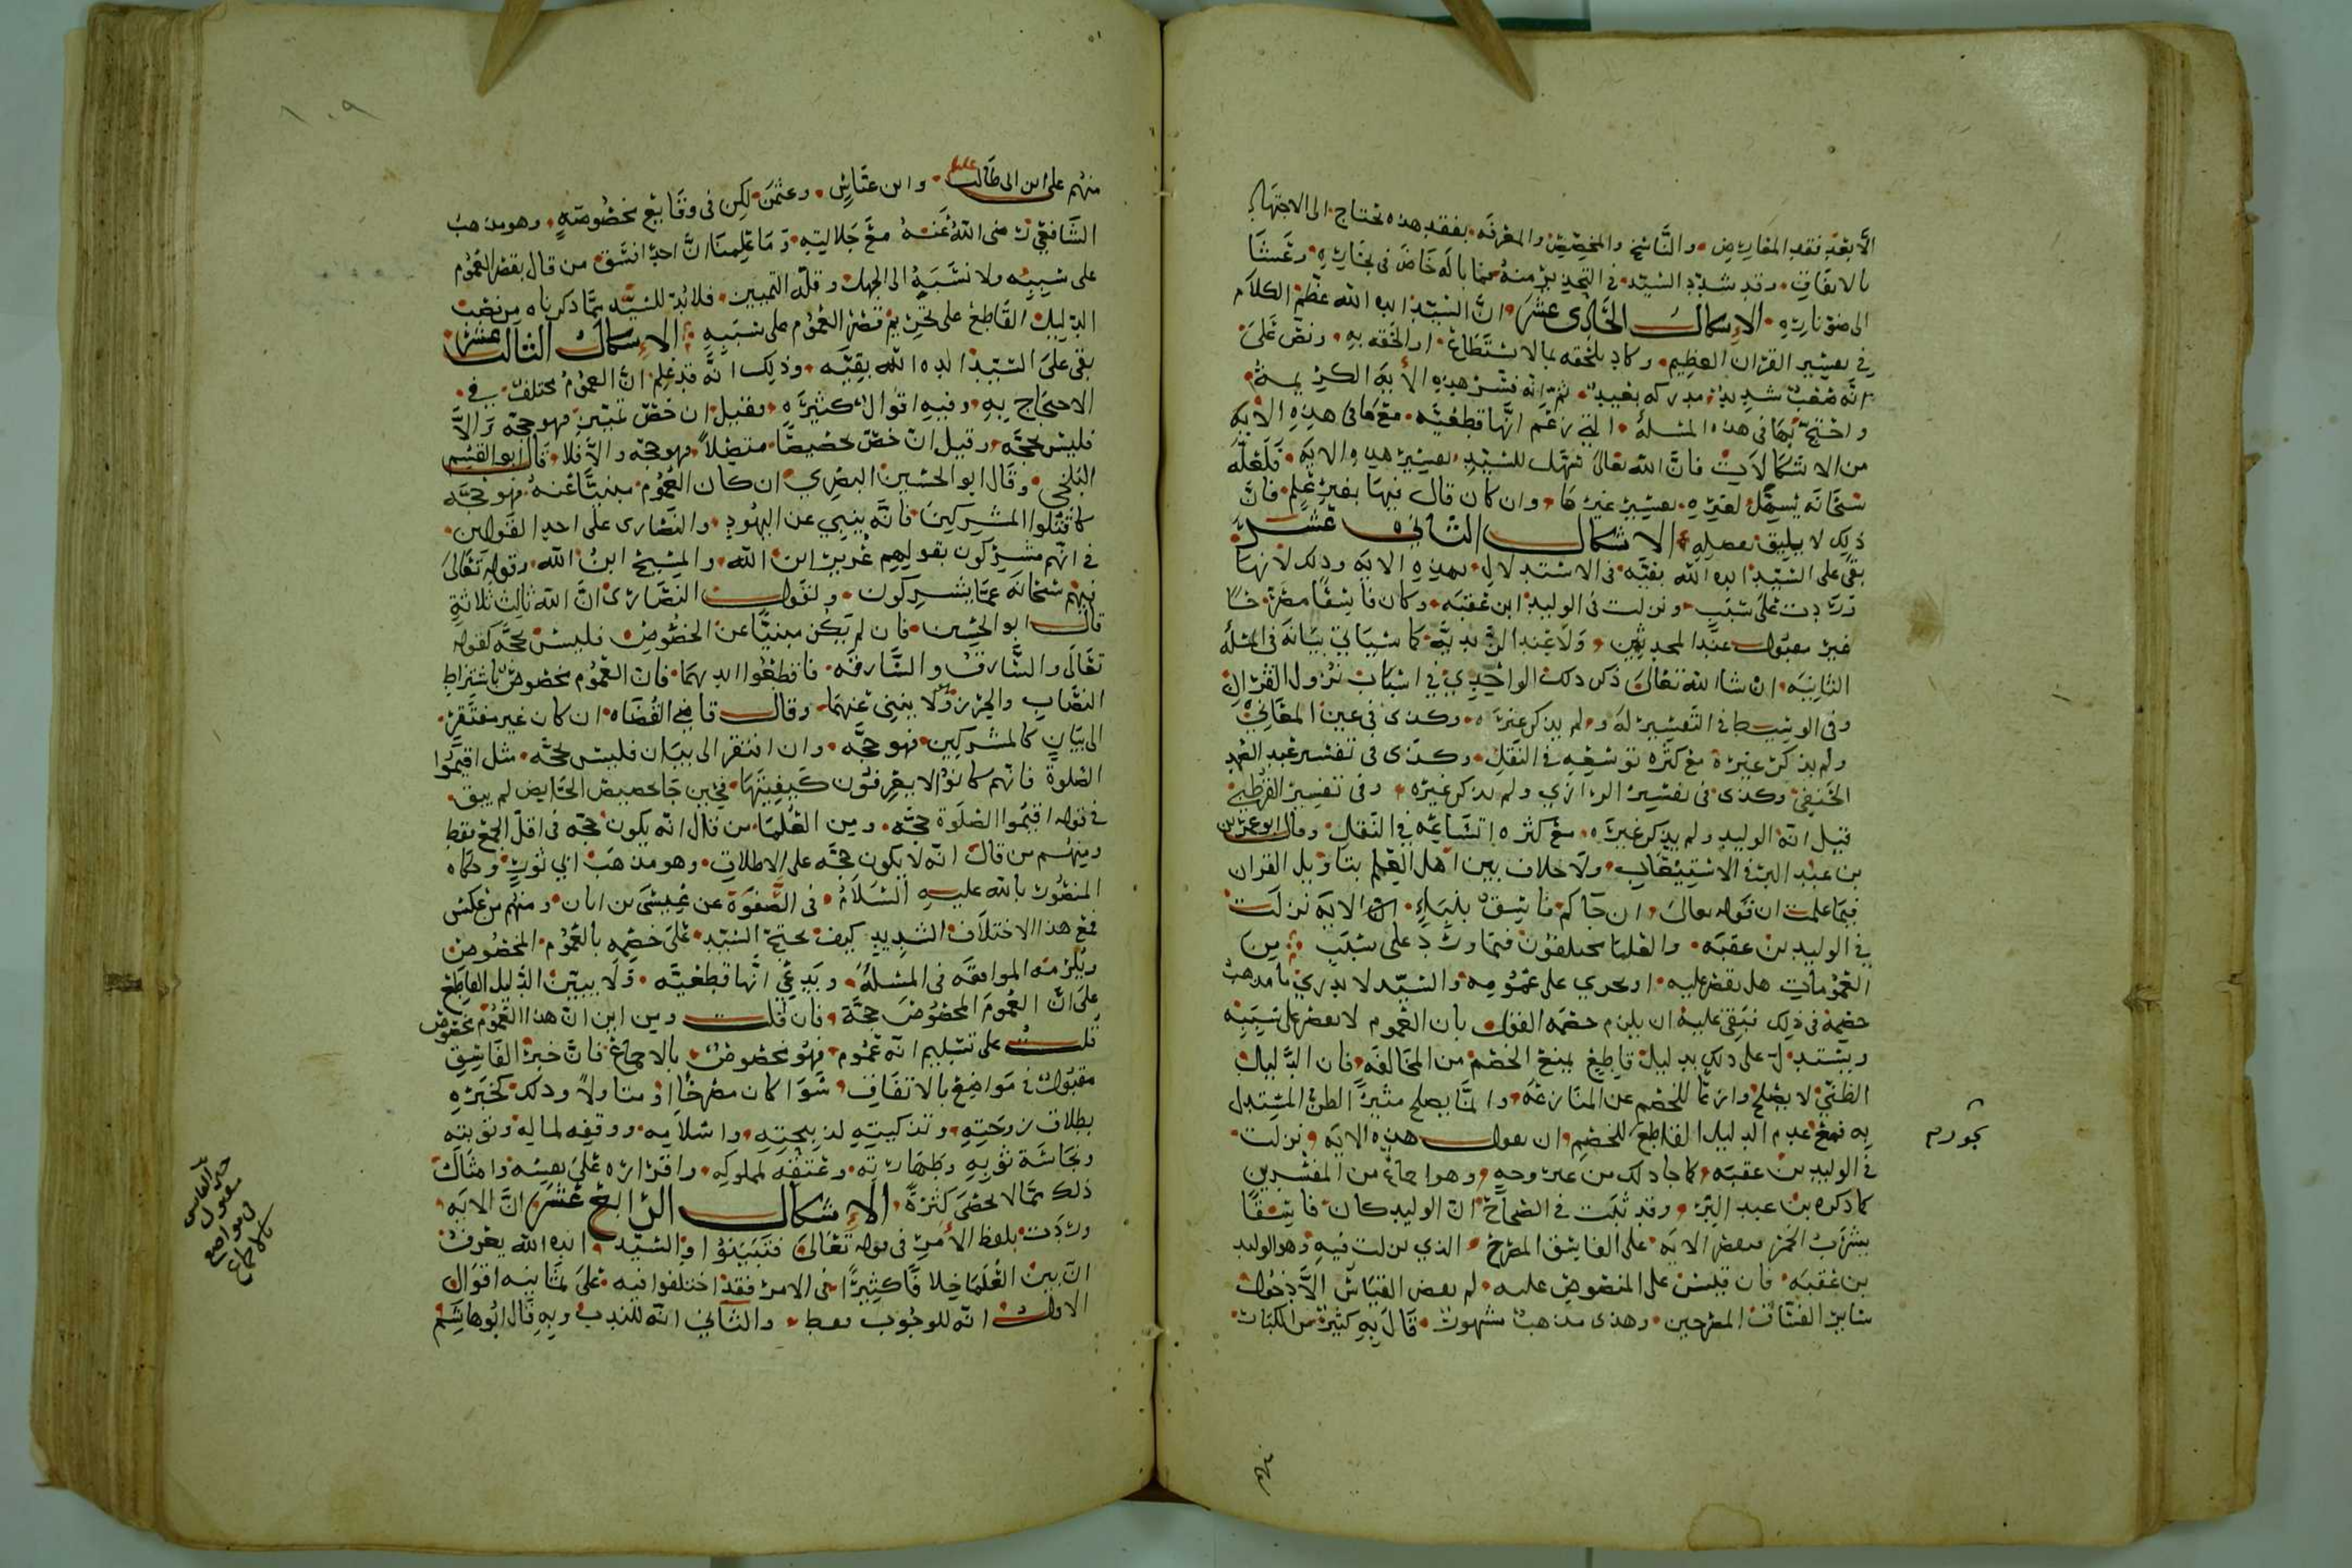 الَّا بعد فقد المعارض والنَّاسخ والمخصِّص والمعرفه بفقد هذه تحتاج الى الاجتهاد
بالاتفاق وقد شدّد السَّيّد في التحذير منه فما باله خاض في بحاره وغشا
الى ضوناره الإشكال الحَادى عشر انَّ السَّيِّد ايده الله عظم الكلام
في تفسير القرآن العظيم وكاد يلحقه بما لا يستطاع او الحقه به ونص على
انّه صعب شديد مدركه بعيد ثم انه فسّر هذه الأيه الكريمة
واحتج بها فى هذه المسئلة التي زعم انّها قطعيّه مع ما فى هذه الايه
من الاشكالات فانَّ الله تعالى سهّل للسّيّد تفسير هذه الايه فلعلّه
سبحانه يسهّل لغيره تفسير غيرها وان كان قال فيها بغير علم فانَّ
ذلك لا يليق بفضله الاشكال الثانى عشر
بقى على السّيّد ايده الله بقيّه فى الاستدلال بهذه الايه وذلك لانها
وردت على سبب ونزلت فى الوليد ابن عقبه وكان فاسقًا مصرّحًا
غير مقبول عند المحدثين ولا عند الزيديّة كما سياتي بيانه فى المسئلة
الثانيه ان شا الله تعالى ذكر ذلك الواحدي في اسباب نزول القرآن
وفى الوسيط فى التفسير له ولم يذكر غيره وكذى فى عين المعاني
ولم يذكر غيره مع كثره توسّعه فى النقل وكذى فى تفسير عبد الصمد
الحنفي وكذى فى تفسير الرازي ولم يذكر غيره وفى تفسير القرطبي
قيل انّه الوليد ولم يذكر غيره مع كثره اتساعه في النقل وقال ابو عمر بن
بن عبد البر فى الاستيعاب ولا خلاف بين اهل العلم بتاويل القران
فيما علمت ان قوله تعالى ان جآكم فاسق بنباءٍ ان الايه نزلت
في الوليد بن عقبه والعلما مختلفون فيما ورد على سبب من
العمومات هل يقصر عليه او يجرى على عمومه والسّيّد لا يدري ما مذهب
خصمه فى ذلك فبقى عليه ان يلزم خصمه القول بان العموم لا يقصر على سببه
ويستدل على ذلك بدليل قاطع يمنع الخصم من المخالفه فان الدَّليل
الظنّي لا يصلح وازعًا للخصم عن المنازعه وانما يصلح مثيرًا لظنّ المستدل
به فمع عدم الدليل القاطع للخصم ان يقول هذه الايه نزلت
فى الوليد بن عقبه كما جا ذلك من غير وجه وهو اجماع من المفسرين
كما ذكره بن عبد البر وقد ثبت فى الصحاح ان الوليد كان فاسقًا
بشرب الخمر فتقصر الايه على الفاسق المصرح الذي نزلت فيه وهو الوليد
بن عقبه فان قيس على المنصوص عليه لم يقض القياس الَّا دخول
ساير الفسّاق المصرحين وهذى مذهب مشهور قال به كثير من الكبار
منهم
منهم على ابن ابى طالب عليلم وابن عبّاس وعثمن لكن فى وقايع مخصوصه وهو مذهب
الشَّافعي رضى اللهُ عنهُ مع جلالته وما علمنا انَّ احدًا نسَّق من قال بقصر العموم
على سببه ولا نسبه الى الجهل وقلّة التمييز فلا بُدّ للسَّيّد ممّا ذكرناه من نصب
الدّليل القاطع على تحريم قصر العموم على سببه الإشكال الثالث عشر
بقى على السَّيّد ايده الله بقيّه وذلك انّه قد علم انَّ العموم مختلف في
الاحتجاج به وفيه اقوال كثيرة فقيل ان خصّ بمبيّن فهو حجّه والَّا
فليس بحجّه وقيل ان خصّ تخصيصًا متصلًا فهو حجّه والَّا فلا قال ابو القسم
البلخي وقال ابو الحسين البصرى ان كان العموم مبنيًّا عنهُ فهو حجّه
كاقتلوا المشركين فانّه ينبي عن اليهود والنّصارى على احد القولين
فى انّهم مشركون بقولهم عُزير ابن الله والمسيح ابنُ الله وقوله تعالى
فيهم سبحانه عمّا يشركون ولقول النصارى انّ الله ثالث ثلاثةٍ
قال ابو الحسين فان لم يكن مبنيًّا عن الخصوص فليس بحجّه كقوله
تعالى والسّارق والسّارقه فاقطعوا ايديهما فان العموم مخصوص باشتراط
النصاب والحرز ولا ينبى عنهما وقال قاضي القضاه ان كان غير مفتقر
الى بيانٍ كالمشركين فهو حجّه وان افتقر الى بيان فليس بحجّه مثل اقيموا
الصلوة فانّهم كانوا لا يعرفون كيفيتها فحين جا تخصيص الحايض لم يبق
فى قوله اقيموا الصلوة حجّه ومن العلما من قال انّه يكون حجّه فى اقلّ الجمع فقط
ومنهم من قال انّه لا يكون حجّه على الاطلاق وهو مذهب ابي ثور وحكاه
المنصور بالله عليه السّلام فى الصّفوة عن عيسى بن ابان ومنهم من عكس
فمع هذا الاختلاف الشديد كيف يحتج السّيّد على خصمه بالعموم المخصوص
ويلزمه الموافقه فى المسئلة ويدعي انّها قطعيّه ولا يبيّن الدّليل القاطع
على انّ العموم المخصوص حجّة فان قلت ومن اين ان هذا العموم مخصوص
قلت على تسليم انّه عموم فهو مخصوص بالاجماع فانّ خبر الفاسق
مقبول فى مواضع بالاتفاق سوا كان مصرحًا او متاولًا وذلك كخبره
بطلاق زوجته وتذكيته لذبيحته واسلامه ووقفه لماله وتوبته
ونجاسة ثوبه وطهارته وعتقه لمملوكه واقراره على نفسه وامثال
ذلك ممّا لا يحصى كثرةً الإشكال الرّابع عشر انّ الايه
وردت بلفظ الأمر فى قوله تعالى فتبيّنوا والسّيّد ايده الله يعرف
انّ بين العلما خلافًا كثيرًا فى الامر فقد اختلفوا فيه على ثمانيه اقوال
الاول انّه للوجوب فقط والثاني انّه للندب وبه قال ابو هاشم
خبر الفاسق
مقبول
فى مواضع
بالاجماع
١٠٩